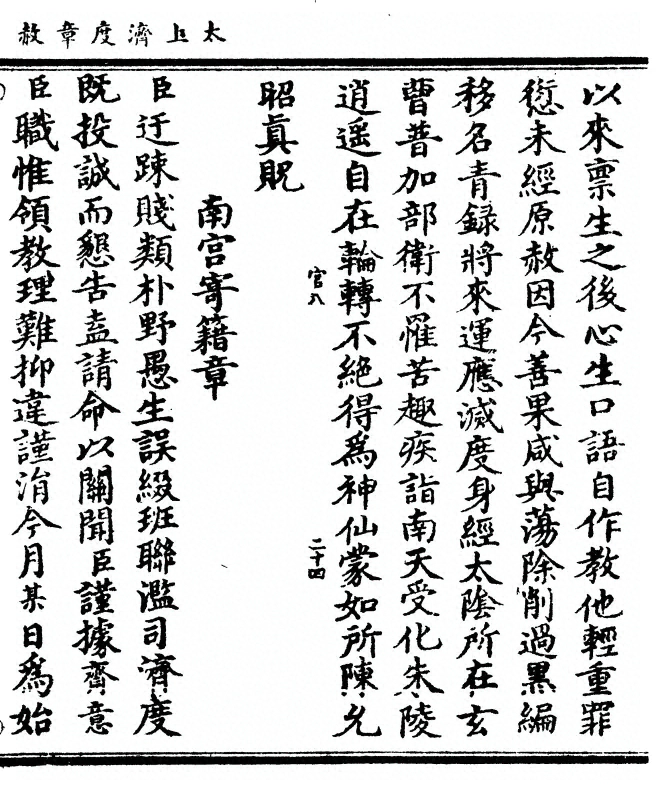 太上濟度章赦
以來禀生之後心生口語自作教他輕重罪
愆未經原赦因今善果咸與蕩除削過黑編
移名青録將來運應滅度身經太陰所在玄
曹普加部衛不罹苦趣疾詣南天受化朱陵
逍遥自在輪轉不絶得爲神仙蒙如所陳允
官八
二十四
昭眞貺
南宫寄籍章
臣迂踈賤類朴野愚生誤綴班聯濫司濟度
既投誠而懇告盍請命以關聞臣謹據齎意
臣職惟領教理難抑違謹涓今月某日爲始